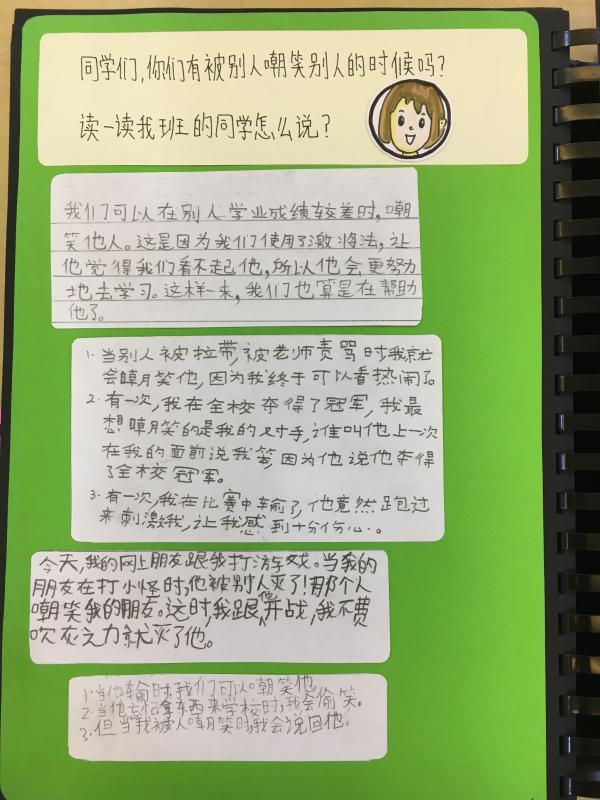 同学们，你们有被别人嘲笑别人的时候吗？
读一读我班的同学怎么说？
我们可以在别人学业成绩较差时，嘲
笑他人。这是因为我们使用了激将法，让
他觉得我们看不起他，所以他会更努力
地去学习。这样一来，我们也算是在帮助
他了。
1. 当别人被拉带，被老师责骂时，我就
会嘲笑他，因为我终于可以看热闹了。
2. 有一次，我在全校夺得了冠军，我最
想嘲笑的是我的对手，谁叫他上一次
在我的面前说我笨，因为他说他夺得
了全校冠军。
3. 有一次，我在比赛中输了，他竟然跑过
来刺激我，让我感到十分伤心。
今天，我的网上朋友跟我打游戏。当我的
朋友在打小怪时，他被别人灭了！那个人
嘲笑我的朋友。这时，我跟他开战，我不费
吹灰之力就灭了他。
1. 当他输时，我们可以嘲笑他。
2. 当他忘记拿东西来学校时，我会偷笑。
3. 但当我被人嘲笑时，我会说回他。